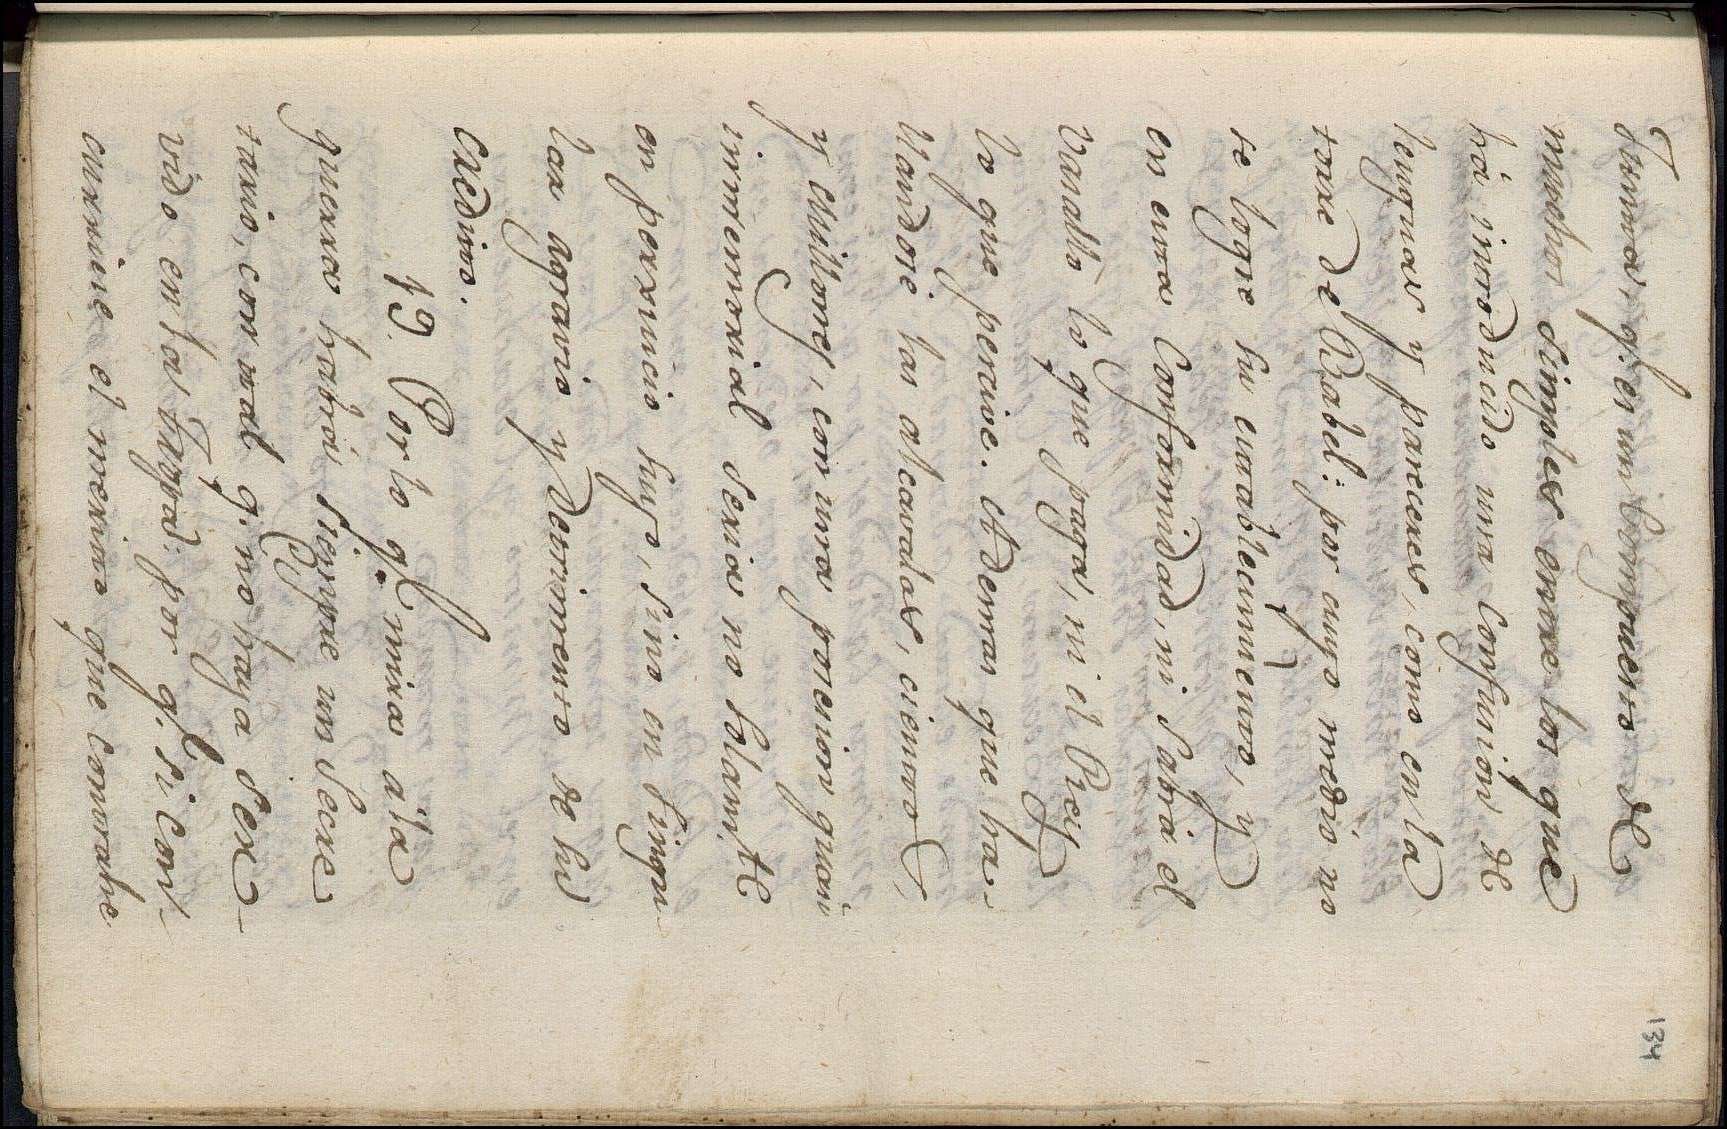 134
Junta, q.e es un Compuesto de
muchos simples entre los que
há introducido una Confusion de
lenguas y pareceres, como en la
torre de Babel: por cuyo medio no
se logre su establecimiento, y
en esta Conformidad, ni sabrá el
Vasallo lo que paga, ni el Rey
lo que percive. Ademas que ha-
llandose las alcavalas, cientos,
y Millones, con una posesion quasi
immemorial seria no solam.te
en perxuicio suyo, sino en singu-
lar agravio y detrimento de su
Credito.
19. Por lo q.e mira a la
guerra habrá siempre un Secre
tario, con tal q.e no haya ser-
vido en la Infta[...]: por q.e si con-
curriese el mesmo que Convatio